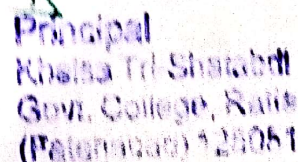 Principal
Khalsa Tri Shatabdi
Govt. College, Ratia
(Fatehabad) 125051